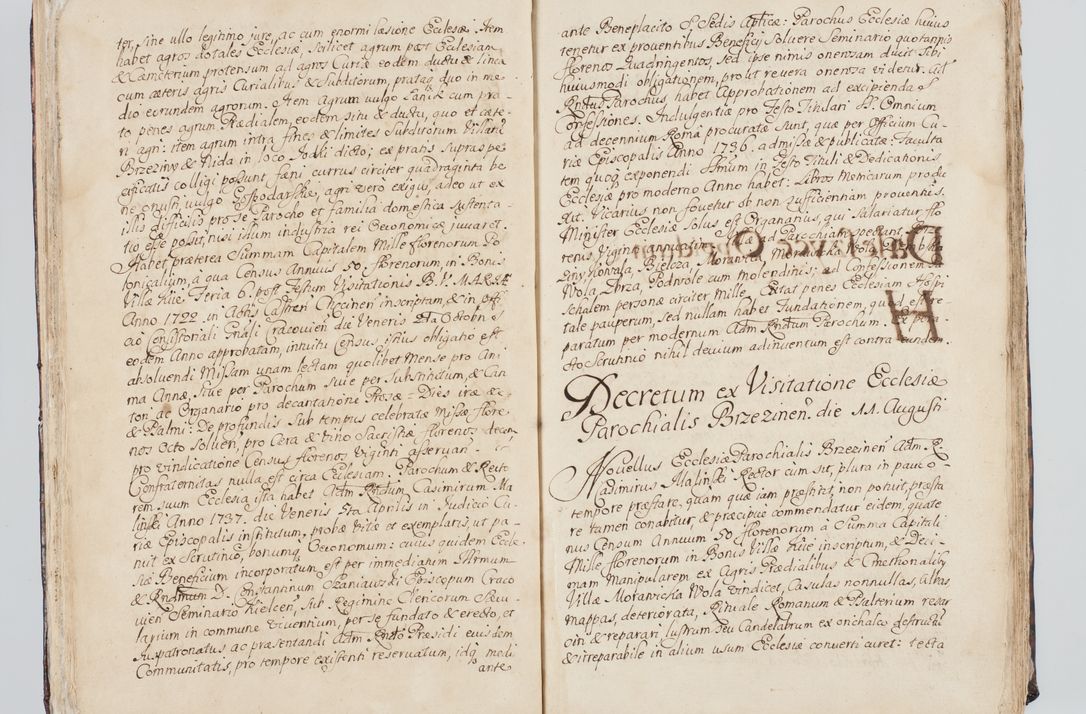 ter, sine ullo legitimo jure, ac cum enormi læsione Ecclesiæ. Item
habet agros dotales Ecclesiæ, scilicet agrum post Ecclesiam
& Cæmeterium protensum ad agros Curiæ eodem ductu & linea
cum cæteris agris Curialibus & Subditorum, pratas duo in me-
dio eorundem agrorum. Item Agrum vulgo Łanik cum pra-
to penes agrum Prædialem, eodem situ & ductu, quo et cæte-
ri agri: item agrum intra fines & limites Subditorum Villarū
Brzeziny & Nida in loco dicto; ex pratis supraspe-
cificatis colligi possunt fæni currus circiter quadraginta be-
ne onusti, vulgo Gospodarskie, agri vero exigui, adeo ut ex
illis difficilis prorse Parocho et familia domestica sustenta-
tio esse possit, nisi illum industria rei Œconomicæ juvaret.
Habet præterea Summam Capitalem Mille florenorum Po-
lonicalium, à qua Census Annuus 50. florenorum, in Bonis
Villæ Feria 6. post Festum Visitationis B. V. MARIÆ
Anno 1722. in Actis Castren̄ inscriptam, & in
Consistoriali Cracovien̄ die Veneris 2da Octobris
eodem Anno approbatam, intuitu Census istius obligatio est
absolvendi Missam unam lectam quolibet Mense pro Ani-
ma Annæ, sive per Parochum sive per Substitutum, & Can-
tori ac Organario pro decantatione Prosæ = Dies iræ &c
& Psalmi: De profundis sub tempus celebratæ Missæ flore-
nos Octo solven̄, pro Cera & Vino Sacristiæ florenos decem,
pro vindicatione Census florenos Viginti asservan̄
Confraternitas nulla est circa Ecclesiam. Parochum & Recto-
rem suum Ecclesia ista habet Adm Rndum Casimirum Ma-
liński Anno 1737. die Veneris 5ta Aprilis in Judicio Cu-
riæ Episcopalis institutum, probæ vitæ et exemplaris, ut pa-
tuit ex Scrutinio, bonumq Œconomum: cuius quidem Eccle-
siæ Beneficium incorporatum est per immediatum Illmum
& Rndmum D. Constantinum Szaniawski Episcopum Craco-
vien̄ Seminario Kielcen̄, sub Regimine Clericorum Sæcu-
larium in commune viventium, per se fundato & erecto, et
Juspatronatus ac præsentandi Adm Rndo Præsidi eiusdem
Communitatis, pro tempore existenti reservatum, idq medi-
ante
ante Beneplacito S. Sedis Apticæ: Parochus Ecclesiæ huius
tenetur ex proventibus Beneficij solvere Seminario quotannis
florenos Quadringentos, sed ipse nimis onerosam ducit sibi
huiusmodi obligationem, prout revera onerosa videtur. Adm
Rndus Parochus, habet Approbationem ad excipiendas
Confessiones. Indulgentiæ pro Festo Titulari SS. Omnium
ad decennium Româ procuratæ sunt, quæ per Officium Cu-
riæ Episcopalis Anno 1736. admissæ & publicatæ: Faculta-
tem quoq exponendi SSmum in Festo Tituli & Dedicationis
Ecclesiæ pro moderno Anno habet: Libros Metricarum produ-
xit. Vicarius non fovetur ob non sufficientiam proventus.
Minister Ecclesiæ solus est Organarius, qui Salariatur flo-
renis Viginti annuatim. Villæ ad Parochiam spectant, Brze-
ziny, Kowala, Bieleza, Morawica, Morawicka Wola,
Wola, Zbrza, Podwole cum Molendinis; ad Confessionem Pa-
schalem personæ circiter Mille. Extat penes Ecclesiam Hospi-
tale pauperum, sed nullam habet Fundationem, quod est re-
paratum per modernum Adm Rndum Parochum. Ex pera-
cto Scrutinio nihil devium adinventum est contra eundem.
Decretum ex Visitatione Ecclesiæ
Parochialis Brzezinen̄ die 11. Augusti
Novellus Ecclesiæ Parochialis Brzezinen̄ Adm. R.
Casimirus Maliński Rector cùm sit, plura in pauco
tempore præstare, quam quæ iam præstitit, non potuit, præsta-
re tamen conabitur, & præcipue commendatur eidem, quate-
nus Censum Annuum 50. florenorum à Summa Capitali
Mille florenorum in Bonis Villæ inscriptum, & Deci-
mam Manipularem ex Agris Prædialibus & Cmethonalibus
Villæ Morawicka Wola vindicet, Casulas nonnullas, albas
mappas, deteriorata, Rituale Romanum & Psalterium resar-
ciri & reparari, lustrum seu Candelabrum ex orichalco destructū
& irreparabile in alium usum Ecclesiæ converti curet: tecta